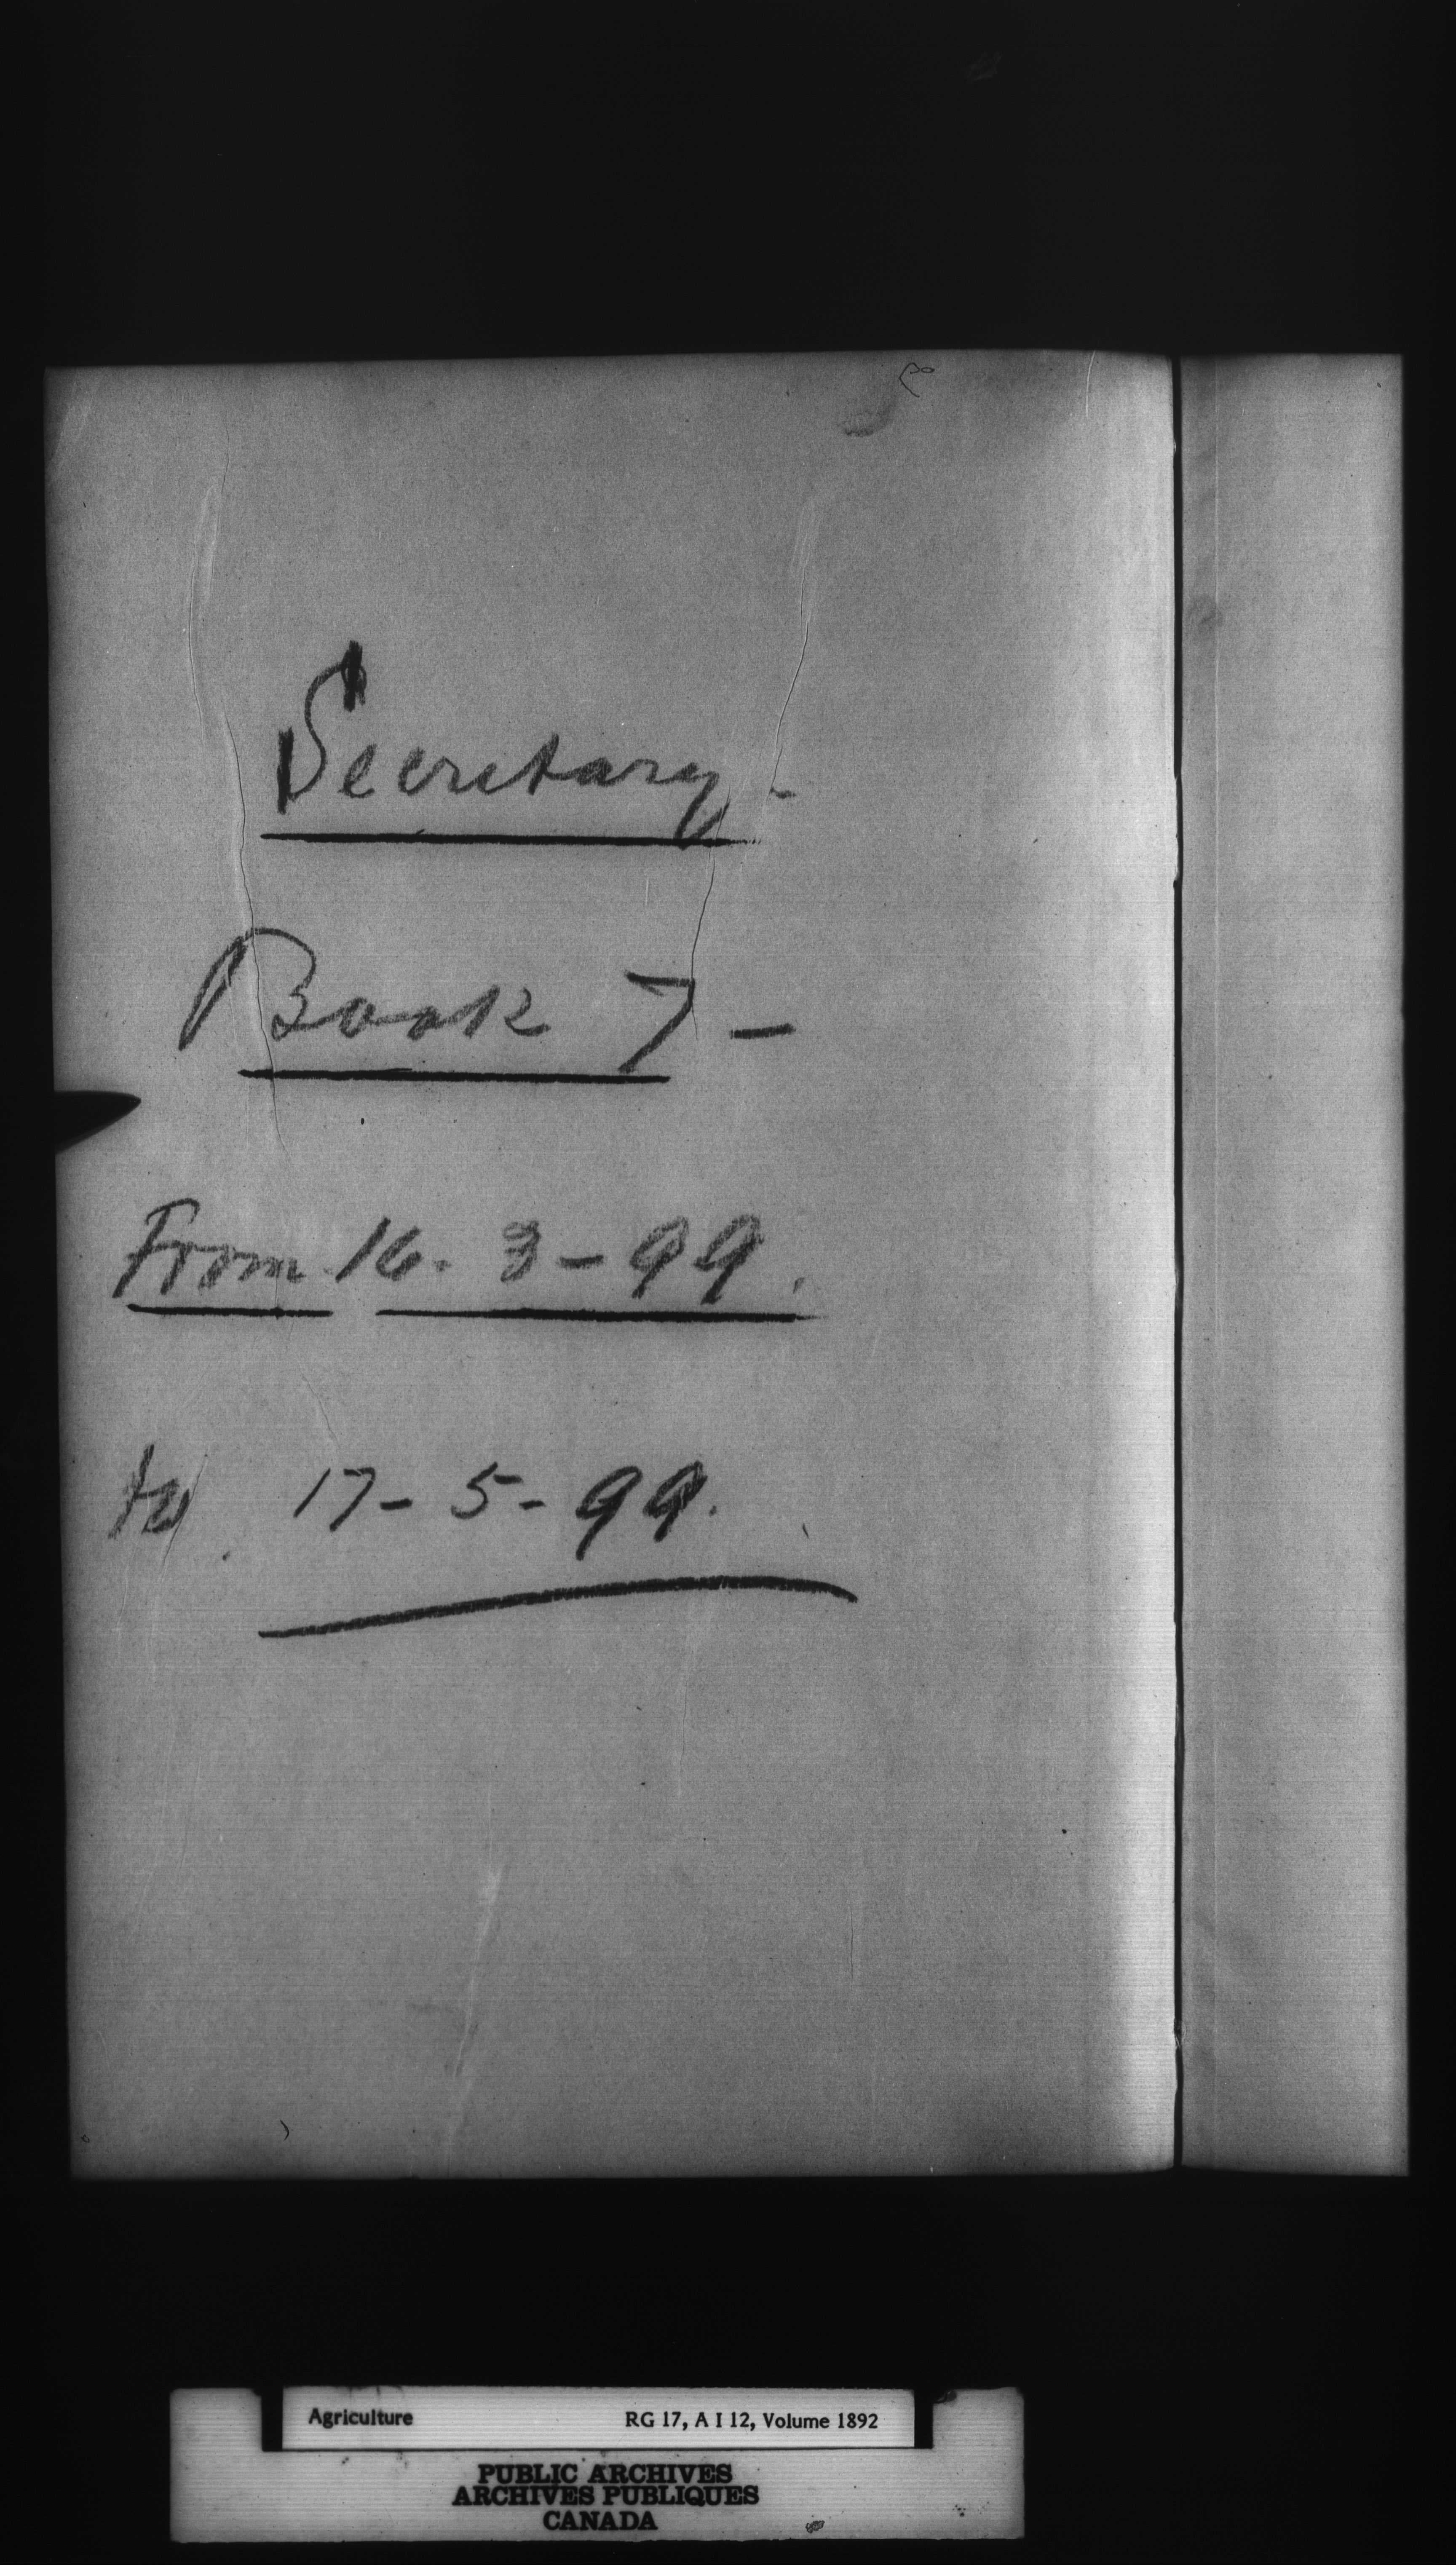 Secretary -
Book 7 -
From 16. 3 - 99.
to 17 - 5 - 99.
Agriculture RG 17, A I 12, Volume 1892
PUBLIC ARCHIVES
ARCHIVES PUBLIQUES
CANADA